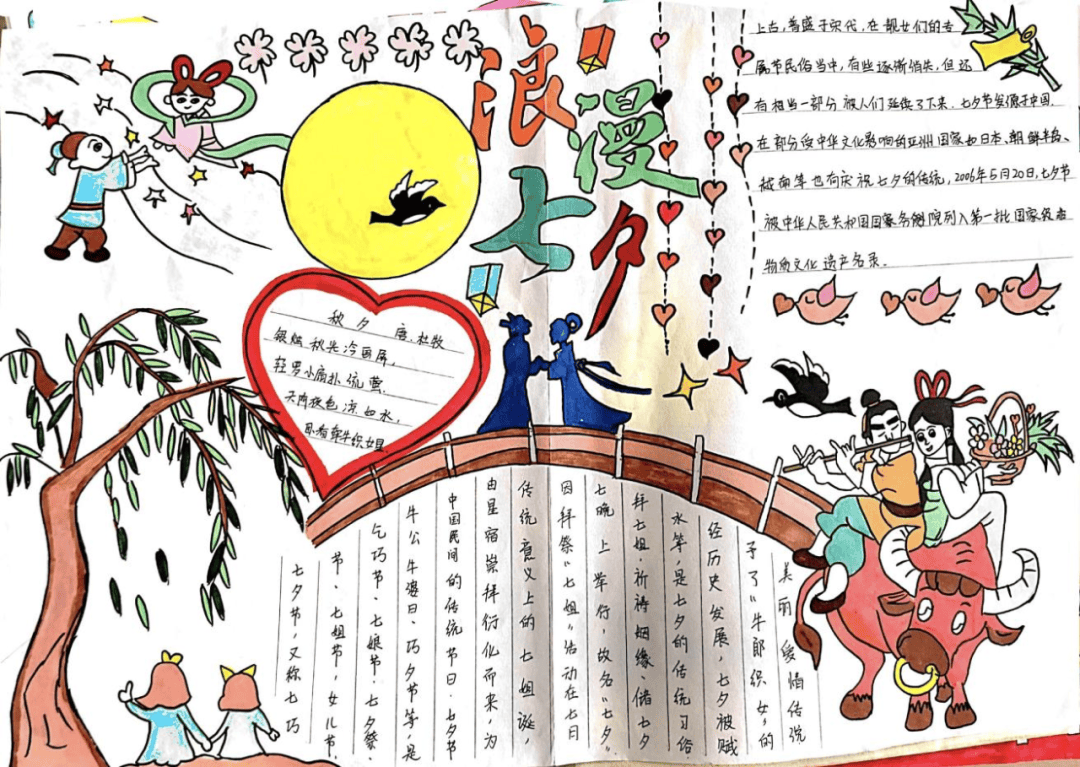 浪漫
七夕
秋夕 唐.杜牧
银烛秋光冷画屏,
轻罗小扇扑流萤.
天阶夜色凉如水,
卧看牵牛织女星.
七夕节,又称七巧
节、七姐节,女儿节、
乞巧节、七娘节、七夕祭、
牛公牛婆日、巧夕节等,是
中国民间的传统节日.七夕节
由星宿崇拜衍化而来,为
传统意义上的七姐诞,
因拜祭“七姐”活动在七日
七晚上举行,故名“七夕”.
拜七姐、祈祷姻缘、储七夕
水等,是七夕的传统习俗.
经历史发展,七夕被赋
予了“牛郎织女”的
美丽爱情传说
上古,普盛于宋代,在靓女们的专
属节民俗当中,有些逐渐消失,但还
有相当一部分被人们延续了下来.七夕节发源于中国,
在部分受中华文化影响的亚洲国家如日本、朝鲜半岛、
越南等也有庆祝七夕的传统,2006年5月20日,七夕节
被中华人民共和国国家务院列入第一批国家级
物质文化遗产名录.